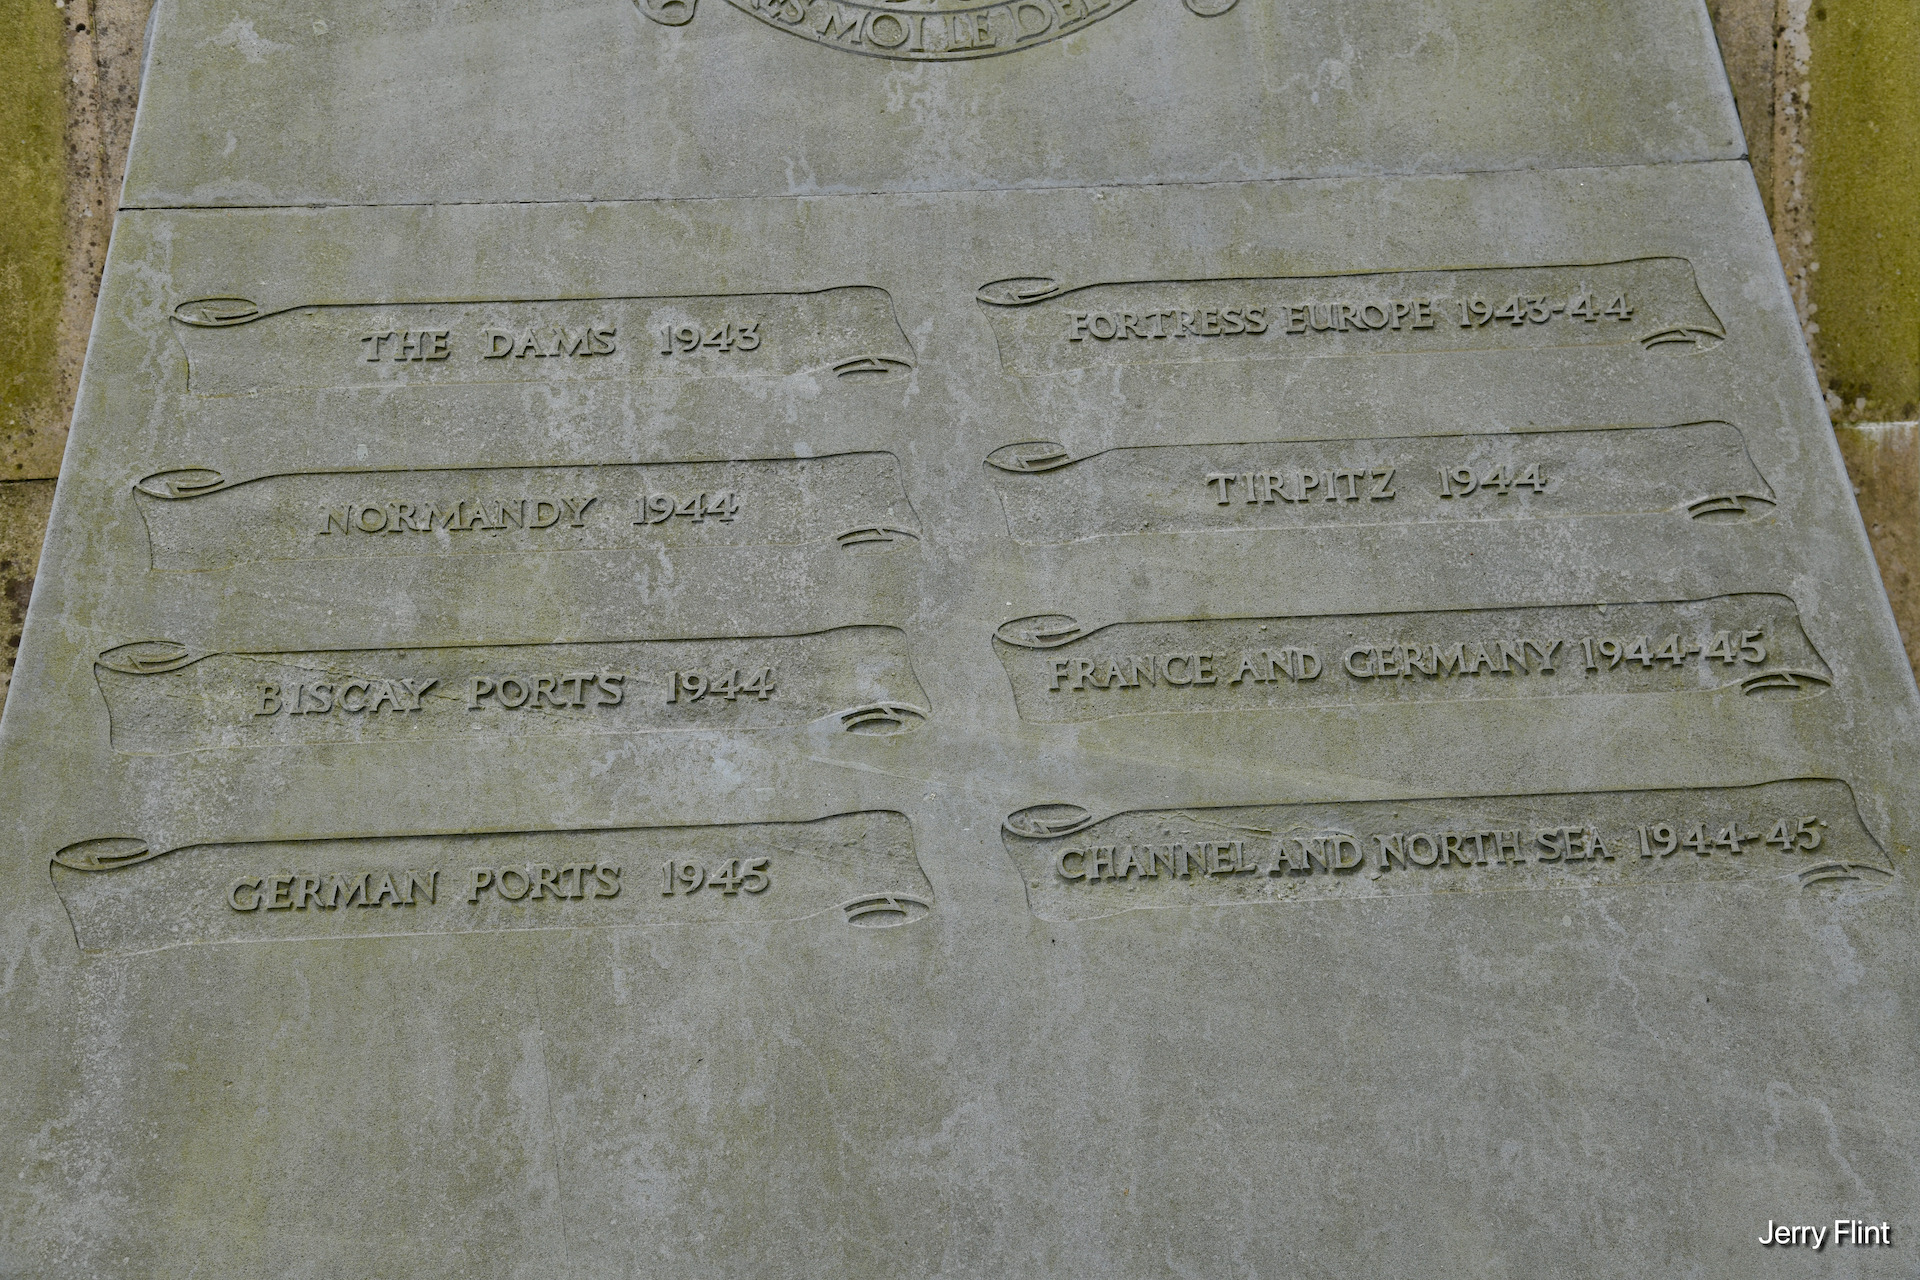 MOLLE
THE DAMS 1943
FORTRESS EUROPE 1943-44
NORMANDY 1944
TIRPITZ 1944
BISCAY PORTS 1944
FRANCE AND GERMANY 1944-45
GERMAN PORTS 1945
CHANNEL AND NORTH SEA 1944-45
Jerry Flint